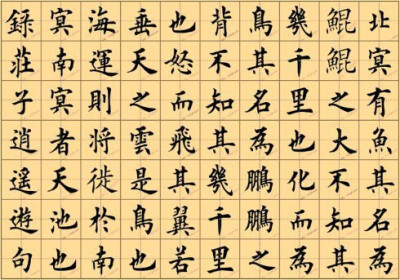 北冥有魚其名為
鯤鯤之大不知其
幾千里也化而為
鳥其名為鵬鵬之
背不知其幾千里
也怒而飛其翼若
垂天之雲是鳥也
海運則將徙於南
冥南冥者天池也
錄莊子逍遙遊句